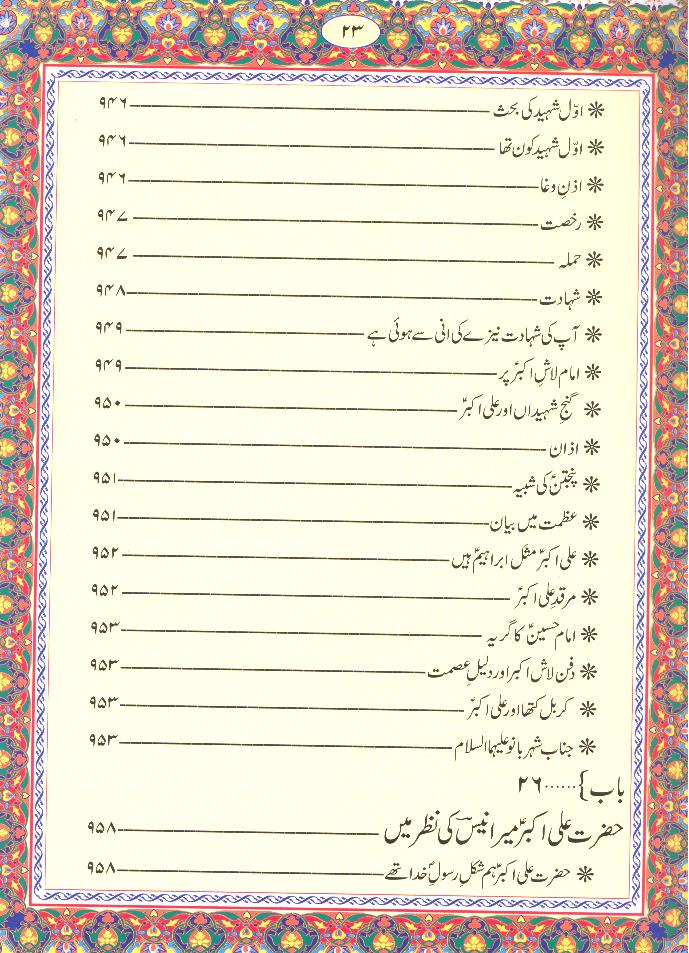 ۲۳
❊ اوّل شہید کی بحث ۹۴۶
❊ اوّل شہید کون تھا ۹۴۶
❊ اذنِ وغا ۹۴۶
❊ رخصت ۹۴۷
❊ حملہ ۹۴۷
❊ شہادت ۹۴۸
❊ آپ کی شہادت نیزے کی انی سے ہوئی ہے ۹۴۹
❊ امام لاشِ اکبرؑ پر ۹۴۹
❊ گنجِ شہیداں اور علی اکبرؑ ۹۵۰
❊ اذان ۹۵۰
❊ پنجتنؑ کی شبیہ ۹۵۱
❊ عظمت میں بیان ۹۵۱
❊ علی اکبرؑ مثل ابراہیمؑ ہیں ۹۵۲
❊ مرقدِ علی اکبرؑ ۹۵۲
❊ امام حسینؑ کا گریہ ۹۵۳
❊ دفن لاش اکبر اور دلیلِ عصمت ۹۵۳
❊ کربل کتھا اور علی اکبرؑ ۹۵۳
❊ جناب شہر بانو علیہا السلام ۹۵۳
باب} ...... ۲۶
حضرت علی اکبرؑ میر انیسؔ کی نظر میں ۹۵۸
❊ حضرت علی اکبرؑ ہم شکلِ رسولِؐ خدا تھے ۹۵۸